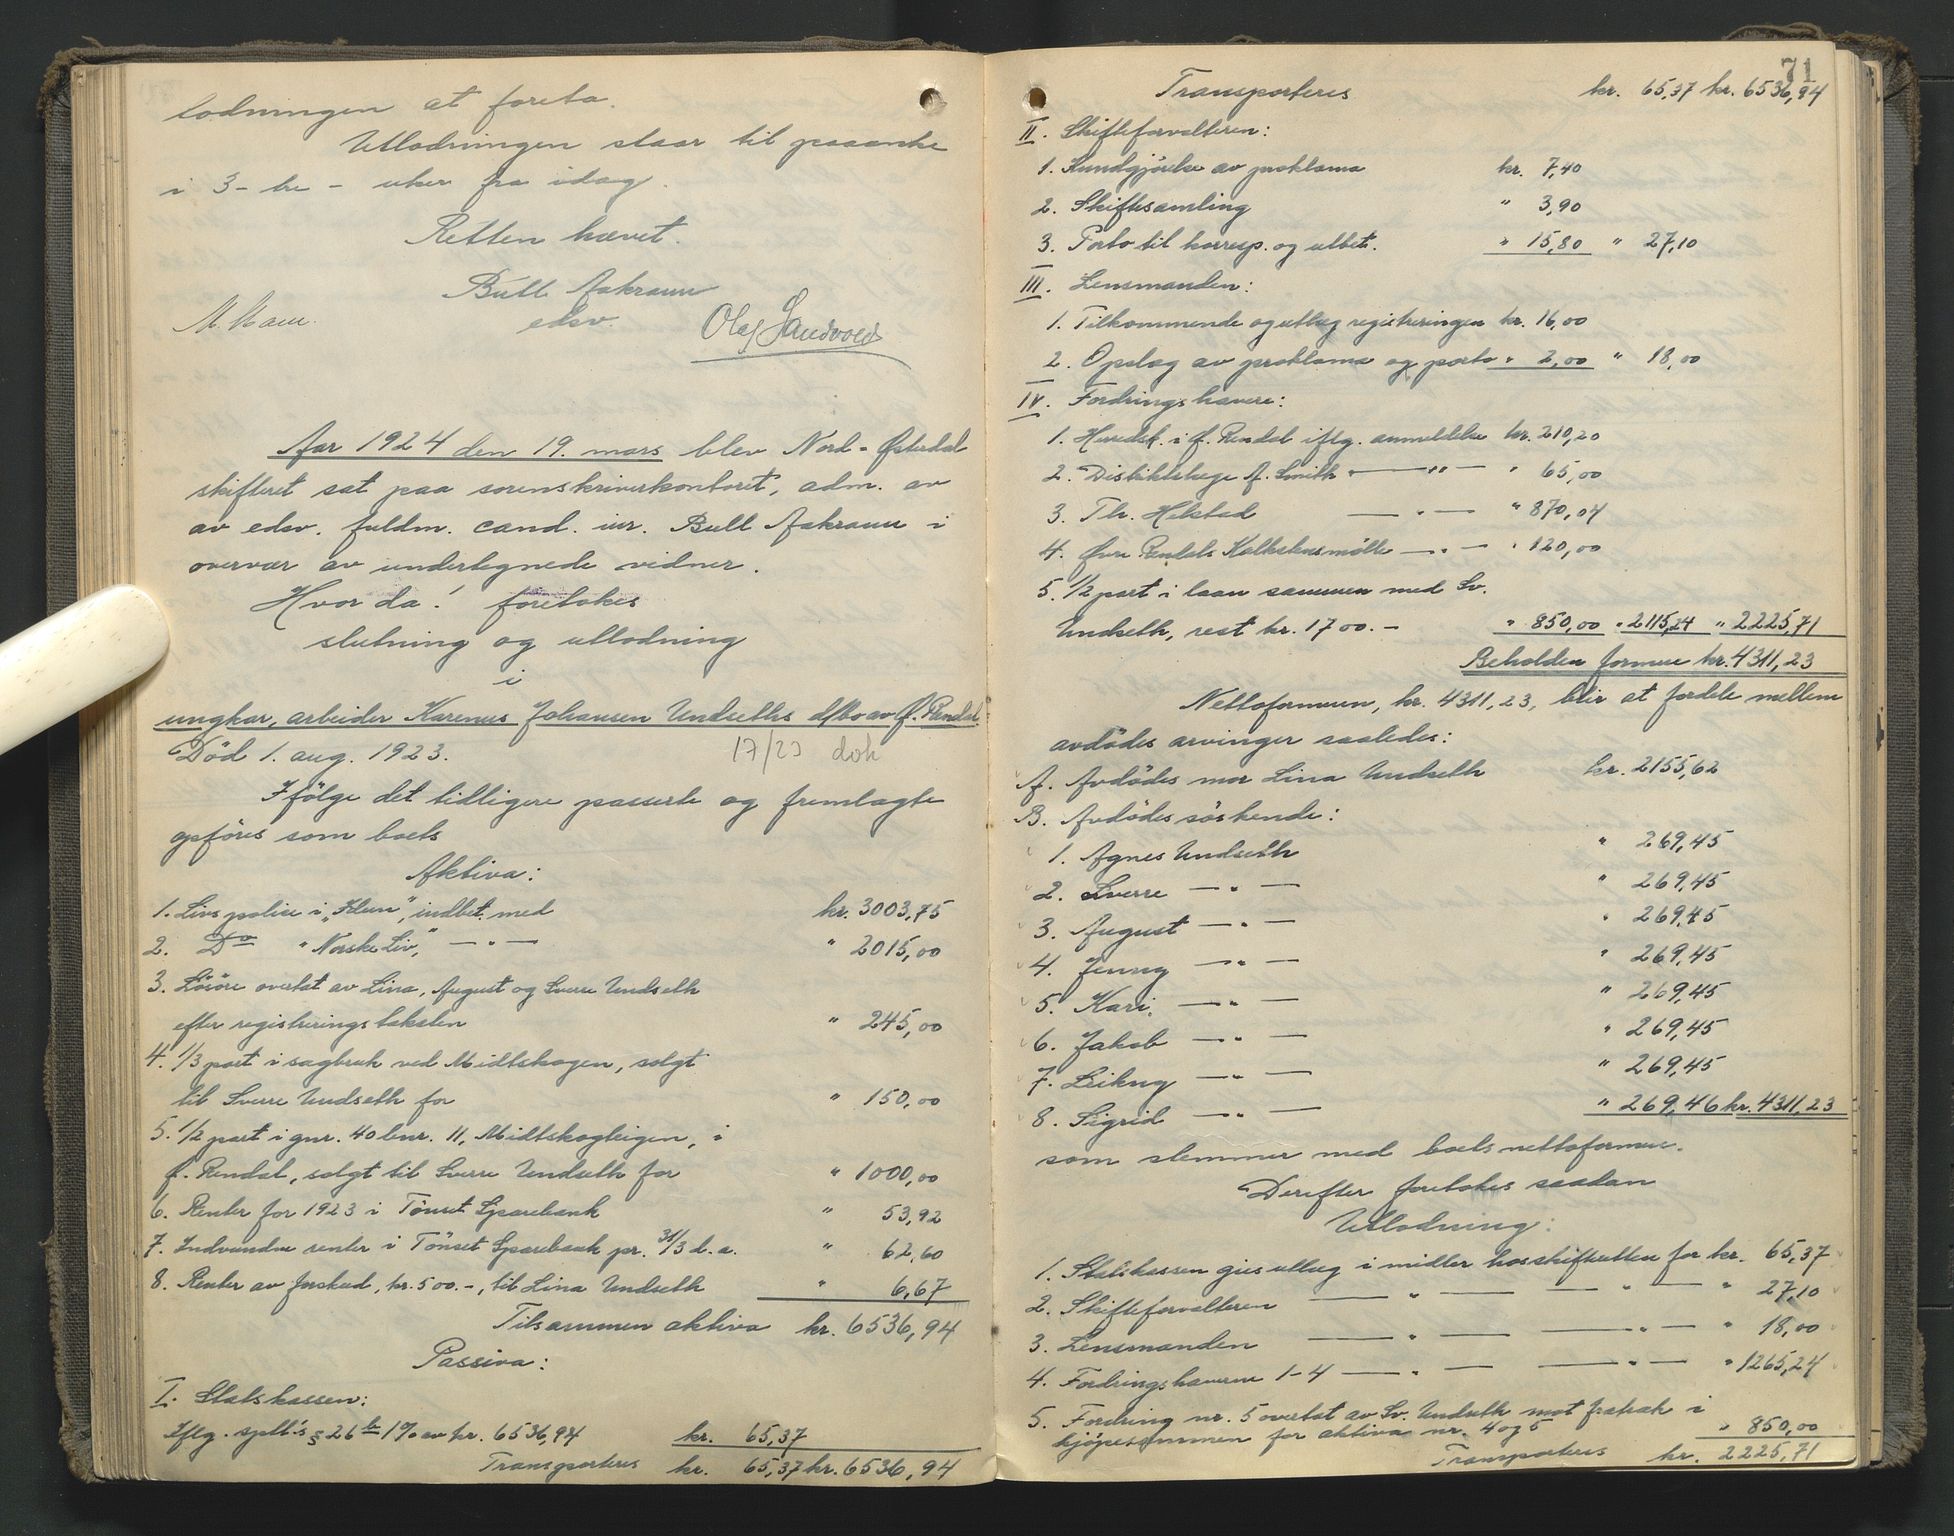 lodningen at foreta.
Utlodningen staar til paaanke
i 3 - tre - uker fra idag.
Retten hævet.
Bull Aakrann
edsv.
Olaf Sandvold
Aar 1924 den 19. mars blev Nord-Østerdal
skifteret sat paa sorenskriverkontoret, adm. av
av edsv. fuldm. cand. jur. Bull Aakrann i
overvær av undertegnede vidner.
Hvor da! foretokes
slutning og utlodning
i
ungkar, arbeider Karenus Johansen Undseths d/bo av Ø. Rendal
Död 1. aug. 1923.
17/23 dok
Ifölge det tidligere passerte og fremlagte
opföres som boets
Aktiva:
1. Livspolice i "Idun", indbet. med kr. 3003,75
2. Do "Norske Liv", — " — " 2015,00
3. Lösöre overtat av Lina, August og Sverre Undseth
efter registreringstaksten " 245,00
4. 1/3 part i sagbruk ved Midtskogen, solgt
til Sverre Undseth for " 150,00
5. 1/2 part i gnr. 40 bnr. 11, Midtskogteigen, i
Ø. Rendal, solgt til Sverre Undseth for " 1000,00
6. Renter for 1923 i Tönset Sparebank " 53,92
7. Indvundne renter i Tönset Sparebank pr. 31/3 d.a. " 62,60
8. Renter av forskud, kr. 500.-, til Lina Undseth " 6,67
Tilsammen aktiva kr. 6536,94
Passiva:
I. Statskassen:
Iflg. spltl.'s § 26 b 1% av kr. 6536,94 kr. 65,37
Transporteres kr. 65,37 kr. 6536,94
71
Transporteres kr. 65,37 kr. 6536,94
II. Skifteforvalteren:
1. Kundgjörelse av proklama kr. 7,40
2. Skiftesamling " 3,90
3. Porto til korresp. og utbet. " 15,80 " 27,10
III. Lensmanden:
1. Tilkommende og utlæg registreringen kr. 16,00
2. Opslag av proklama og porto " 2,00 " 18,00
IV. Fordringshavere:
1. Herredsk. i Ø. Rendal iflg. anmeldelse kr. 210,20
2. Distriktslæge A. Smith — " — " 65,00
3. Th. Helstad — " — " 870,04
4. Øvre Rendals Kalkstensmölle — " — " 120,00
5. 1/2 part i laan sammen med Sv.
Undseth, rest kr. 1700.- " 850,00 " 2115,24 " 2225,71
Beholden formue kr. 4311,23
Nettoformuen, kr. 4311,23, blir at fordele mellem
avdödes arvinger saaledes:
A. Avdödes mor Lina Undseth kr. 2155,62
B. Avdödes söskende:
1. Agnes Undseth " 269,45
2. Sverre — " — " 269,45
3. August — " — " 269,45
4. Jenny — " — " 269,45
5. Kari — " — " 269,45
6. Jakob — " — " 269,45
7. Leikny — " — " 269,45
8. Sigrid — " — " 269,46 kr. 4311,23
som stemmer med boets nettoformue.
Derefter foretokes saadan
Utlodning:
1. Statskassen gies utlæg i midler hos skifteretten for kr. 65,37
2. Skifteforvalteren — " — — " — " 27,10
3. Lensmanden — " — — " — " 18,00
4. Fordringshaverne 1-4 — " — — " — " 1265,24
5. Fordring nr. 5 overtat av Sv. Undseth mot fratræk i
kjöpesummen for aktiva nr. 4 og 5 " 850,00
Transporteres kr. 2225,71